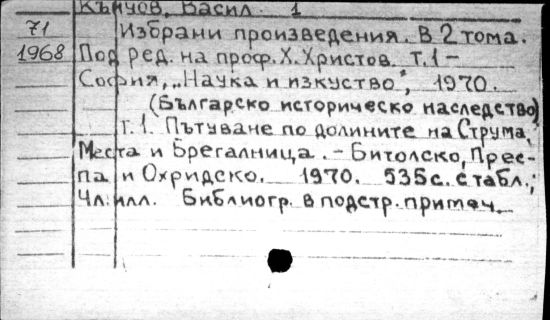 Кънчов, Васил. 1
71 Избрани произведения. В 2 тома.
1968 Под ред. на проф. Х. Христов. т. 1 –
София, „Наука и изкуство", 1970.
(Българско историческо наследство)
т. 1. Пътуване по долините на Струма,
Места и Брегалница. – Битолско, Прес-
па и Охридско. 1970. 535 с. с табл.;
4 л. илл. Библиогр. в подстр. примеч.